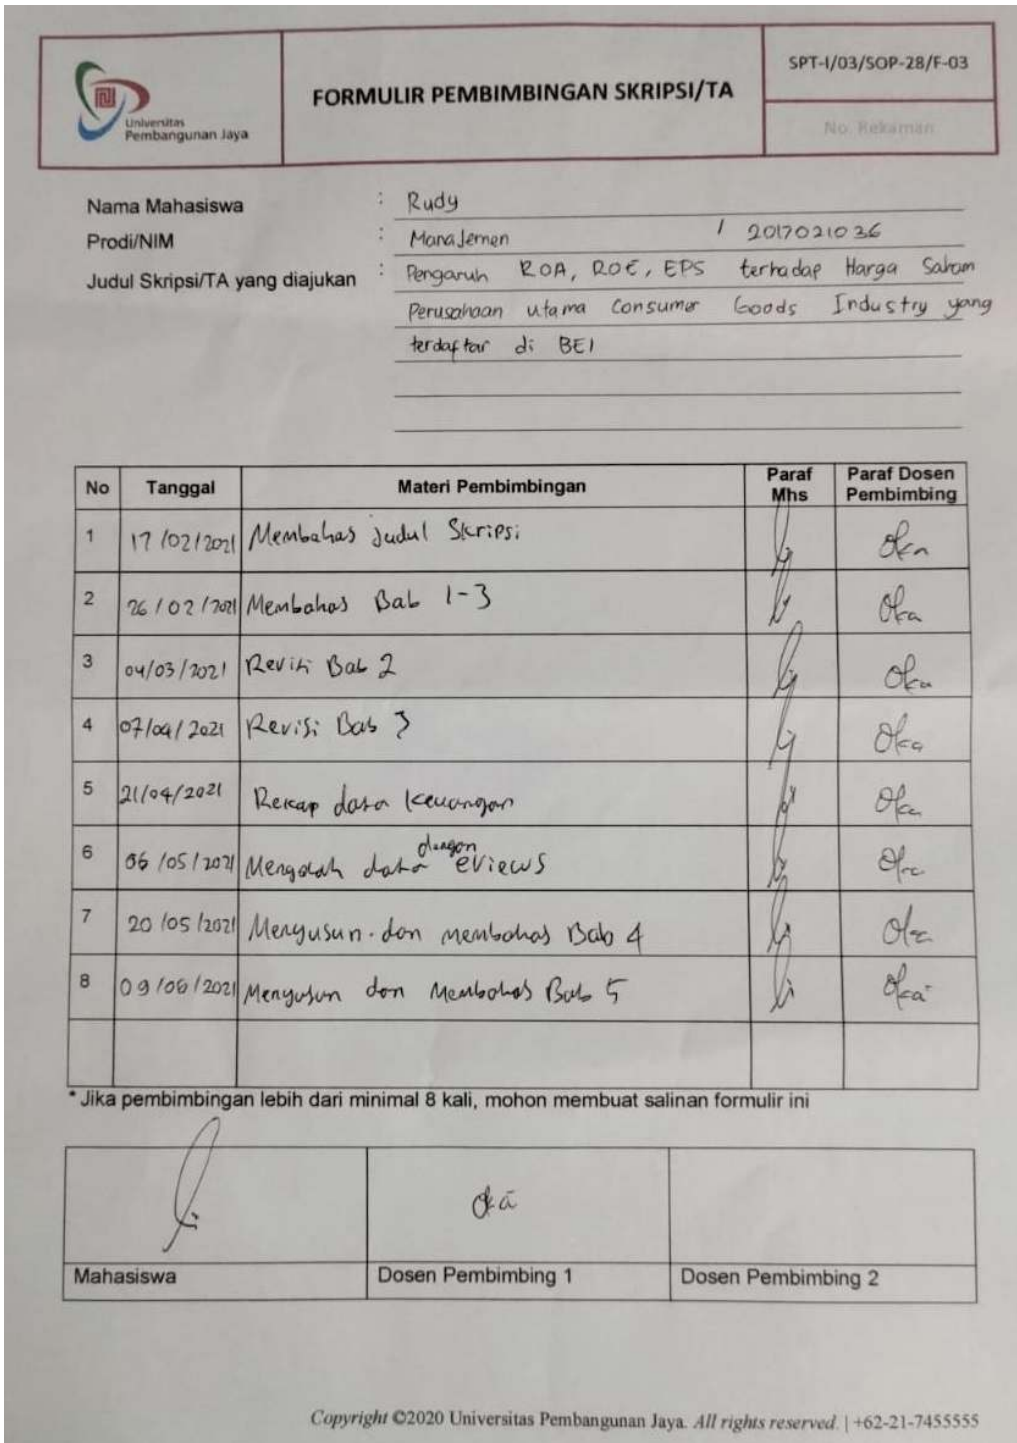 Universitas
Pembangunan Jaya
FORMULIR PEMBIMBINGAN SKRIPSI/TA
SPT-I/03/SOP-28/F-03
No. Rekaman
Nama Mahasiswa : Rudy
Prodi/NIM : Manajemen / 2017021036
Judul Skripsi/TA yang diajukan : Pengaruh ROA, ROE, EPS terhadap Harga Saham
Perusahaan utama Consumer Goods Industry yang
terdaftar di BEI
No Tanggal Materi Pembimbingan Paraf Mhs Paraf Dosen Pembimbing
1 17/02/2021 Membahas judul Skripsi Oka
2 26/02/2021 Membahas Bab 1-3 Oka
3 04/03/2021 Revisi Bab 2 Oka
4 07/04/2021 Revisi Bab 3 Oka
5 21/04/2021 Rekap data keuangan Oka
6 06/05/2021 Mengolah data dengan eviews Oka
7 20/05/2021 Menyusun dan membahas Bab 4 Oka
8 09/06/2021 Menyusun dan Membahas Bab 5 Oka
* Jika pembimbingan lebih dari minimal 8 kali, mohon membuat salinan formulir ini
Oka
Mahasiswa Dosen Pembimbing 1 Dosen Pembimbing 2
Copyright ©2020 Universitas Pembangunan Jaya. All rights reserved. | +62-21-7455555